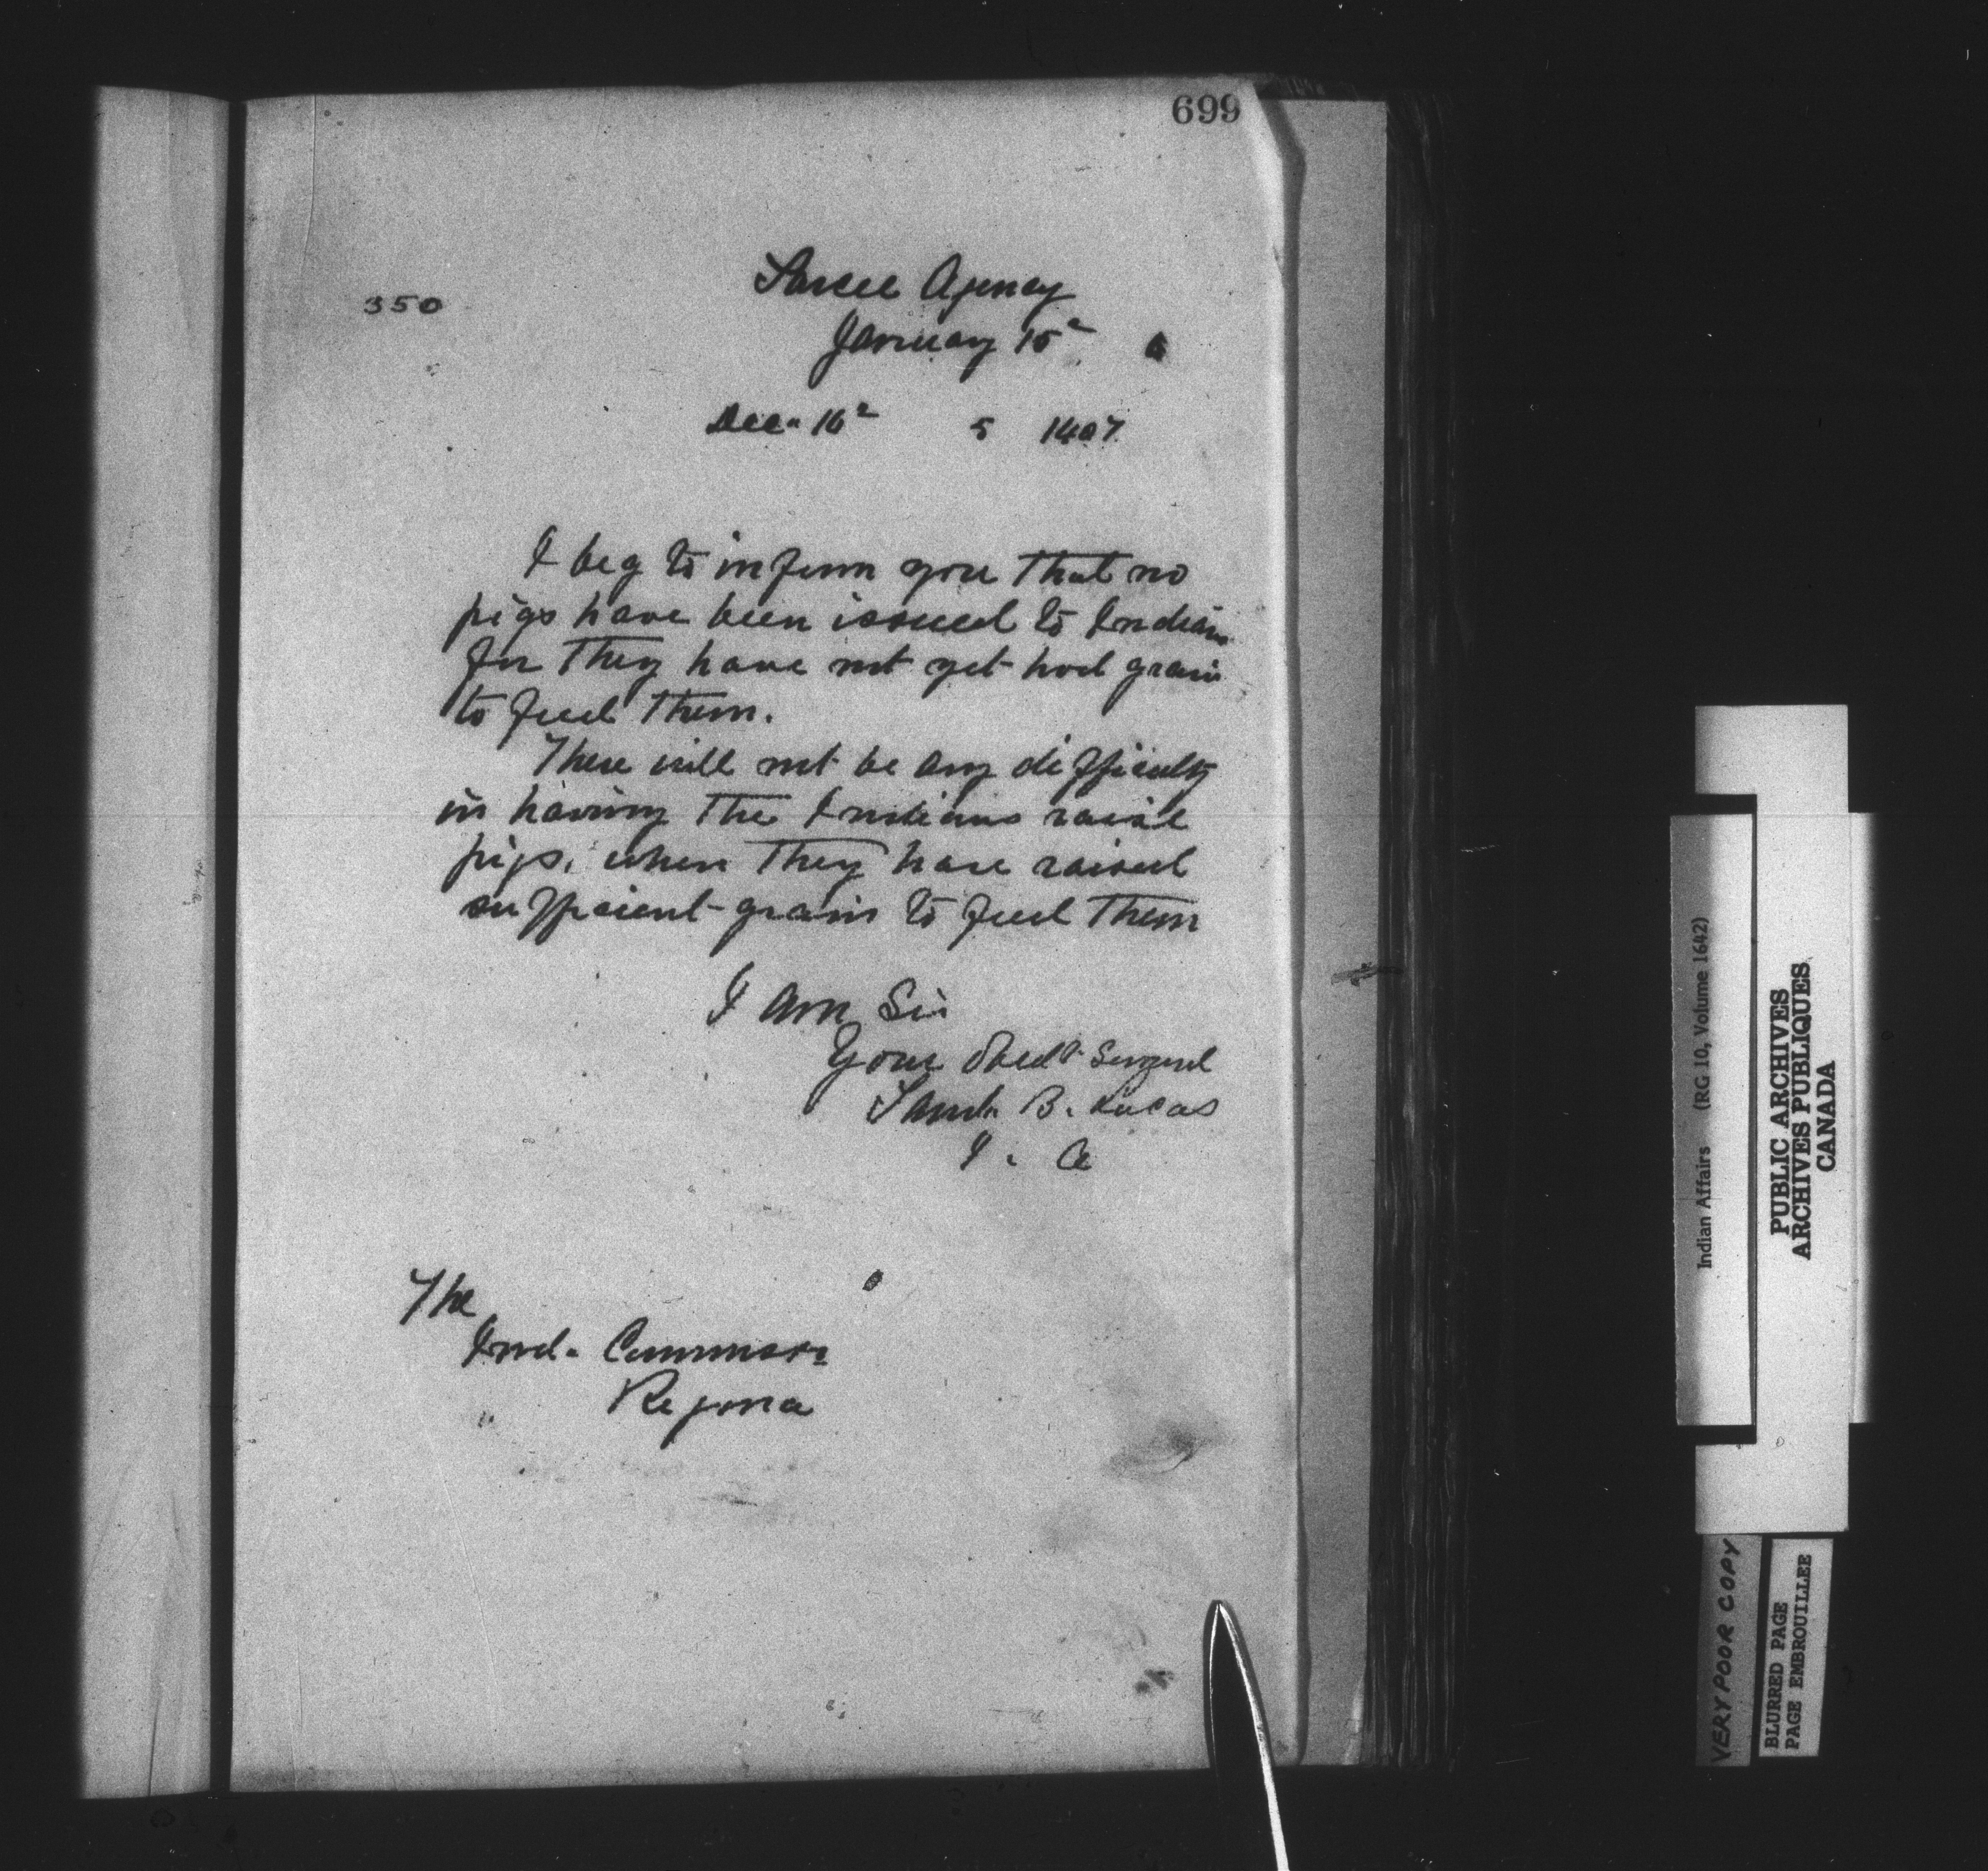 699
350
Sarcee Agency
January 15
6
Dec. 16 5 1407
I beg to inform you that no
pigs have been issued to Indians
for they have not yet had grain
to feed them.
There will not be any difficulty
in having the Indians raise
pigs, when they have raised
sufficient grain to feed them
I am Sir
Your Obedt Servant
Saml. B. Lucas
I. A
The
Ind. Commssr
Regina
Indian Affairs (RG 10, Volume 1642)
PUBLIC ARCHIVES
ARCHIVES PUBLIQUES
CANADA
VERY POOR COPY
BLURRED PAGE
PAGE EMBROUILLEE